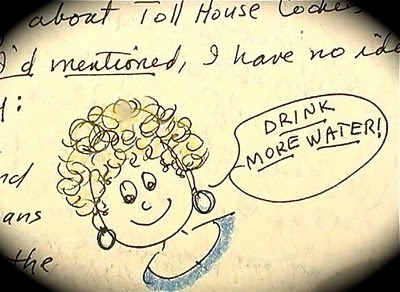 about Toll House Cookies
I'd mentioned, I have no ide
:
DRINK
MORE WATER!
nd
ans
the